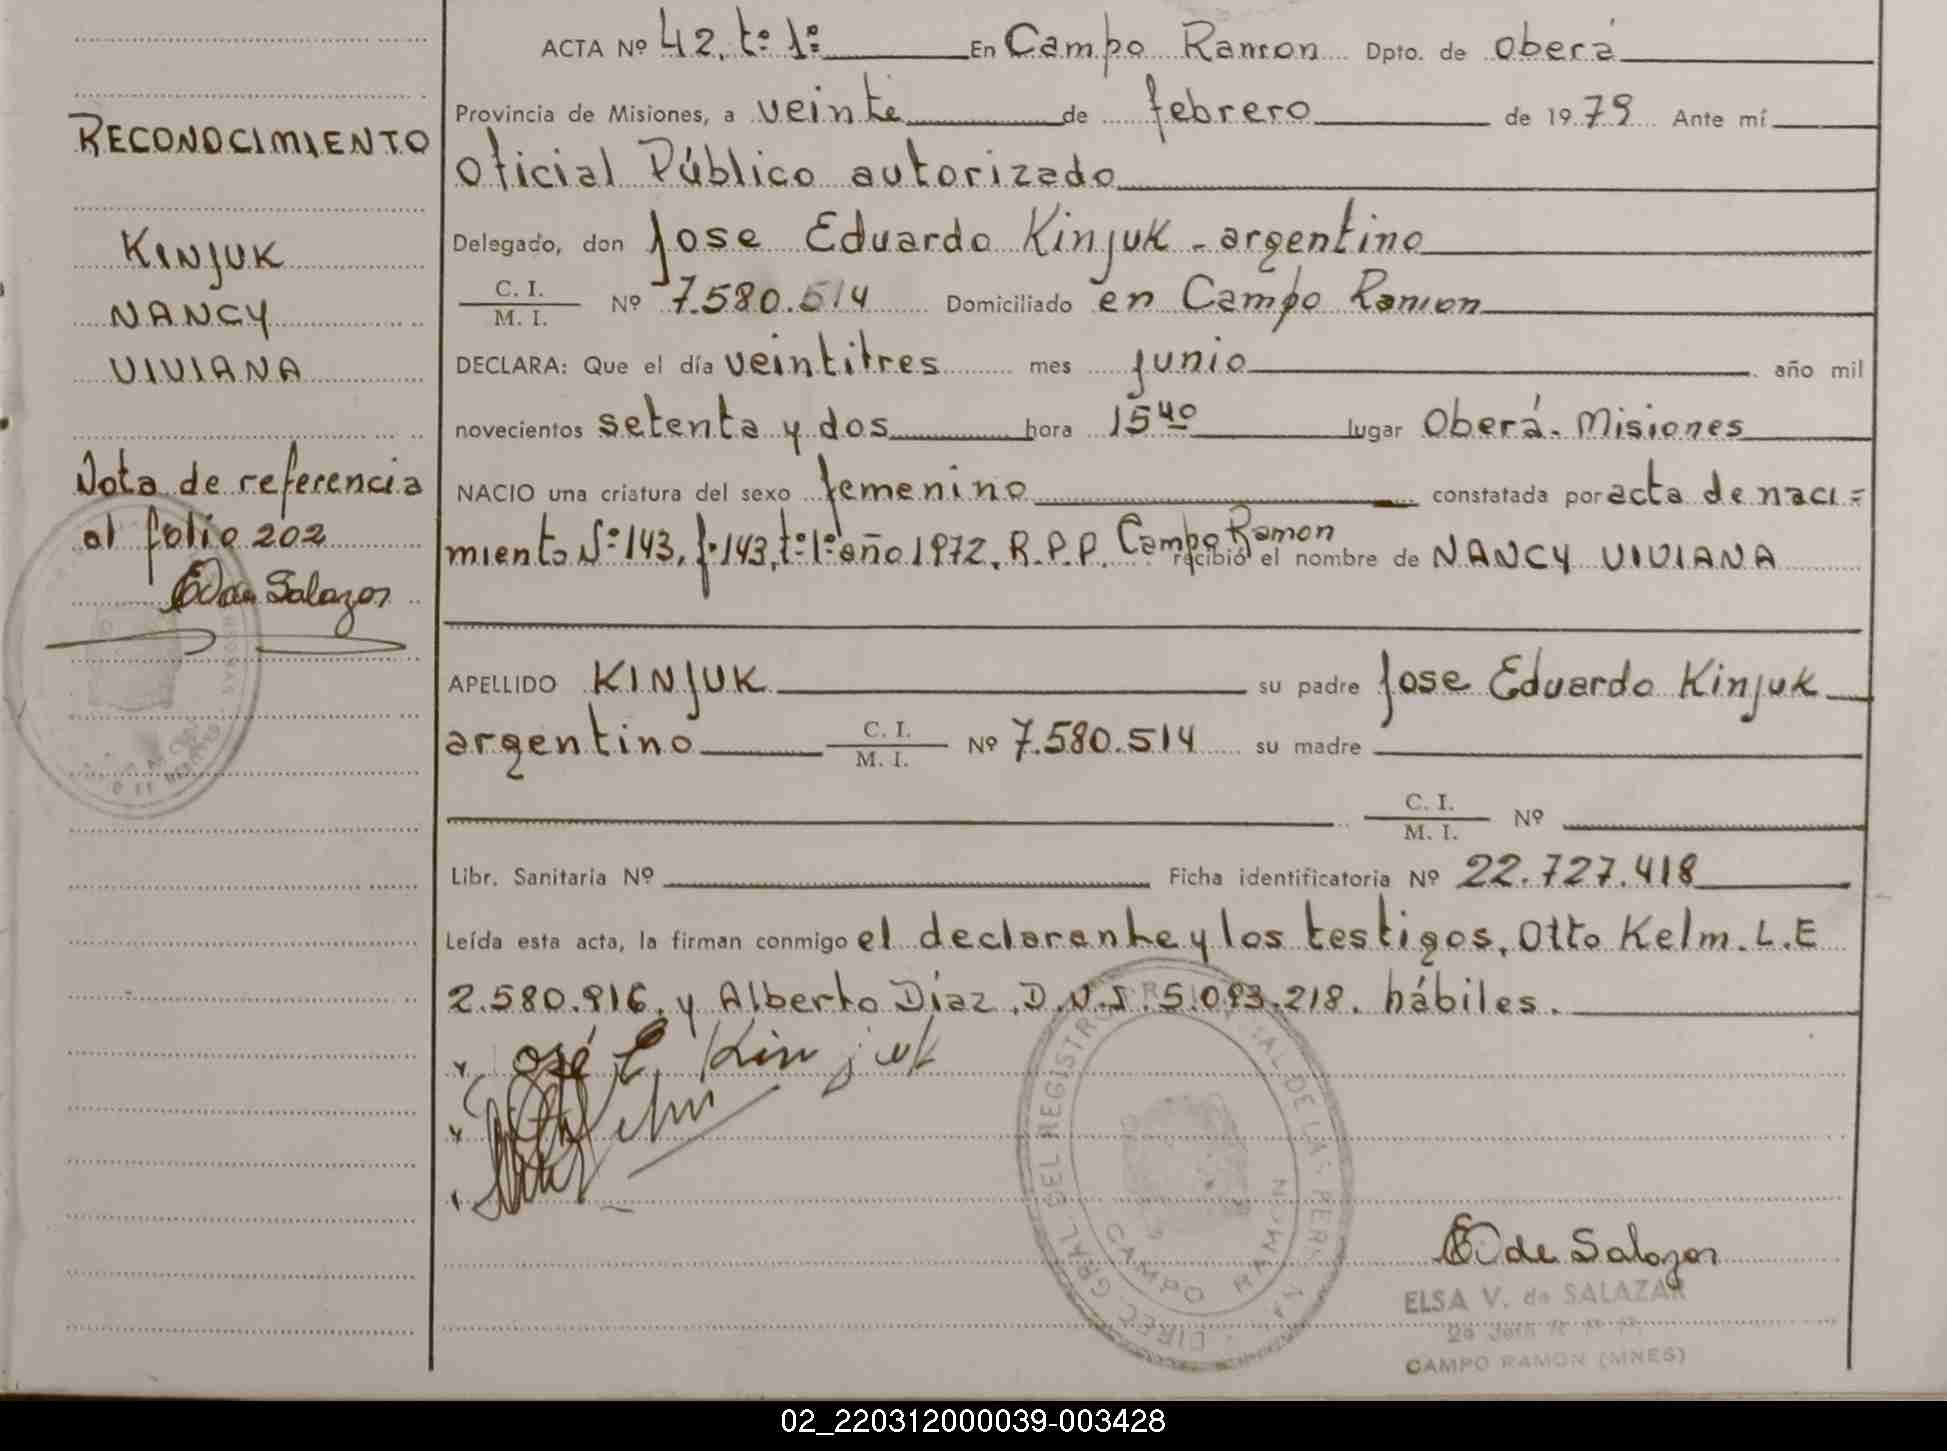 RECONOCIMIENTO
KINJUK
NANCY
VIVIANA
Nota de referencia
al folio 202
de Salazar
ACTA Nº 42. tº 1º En Campo Ramon Dpto. de Oberá
Provincia de Misiones, a veinte de febrero de 1979 Ante mí
Oficial Público autorizado
Delegado, don Jose Eduardo Kinjuk - argentino
C. I. / M. I. Nº 7.580.514 Domiciliado en Campo Ramon
DECLARA: Que el día veintitres mes junio año mil
novecientos setenta y dos hora 15 40 lugar Oberá. Misiones
NACIO una criatura del sexo femenino constatada por acta de naci=
miento Nº 143, fº 143, tº 1º año 1972, R.P.P. Campo Ramon recibió el nombre de NANCY VIVIANA
APELLIDO KINJUK su padre Jose Eduardo Kinjuk
argentino C. I. / M. I. Nº 7.580.514 su madre
C. I. / M. I. Nº
Libr. Sanitaria Nº Ficha identificatoria Nº 22.727.418
Leída esta acta, la firman conmigo el declarante y los testigos, Otto Kelm. L.E
2.580.916, y Alberto Diaz. D.N.I. 5.093.218. hábiles.
José E. Kinjuk
de Salazar
ELSA V. de SALAZAR
CAMPO RAMON (MNES)
CAMPO RAMON
02_220312000039-003428